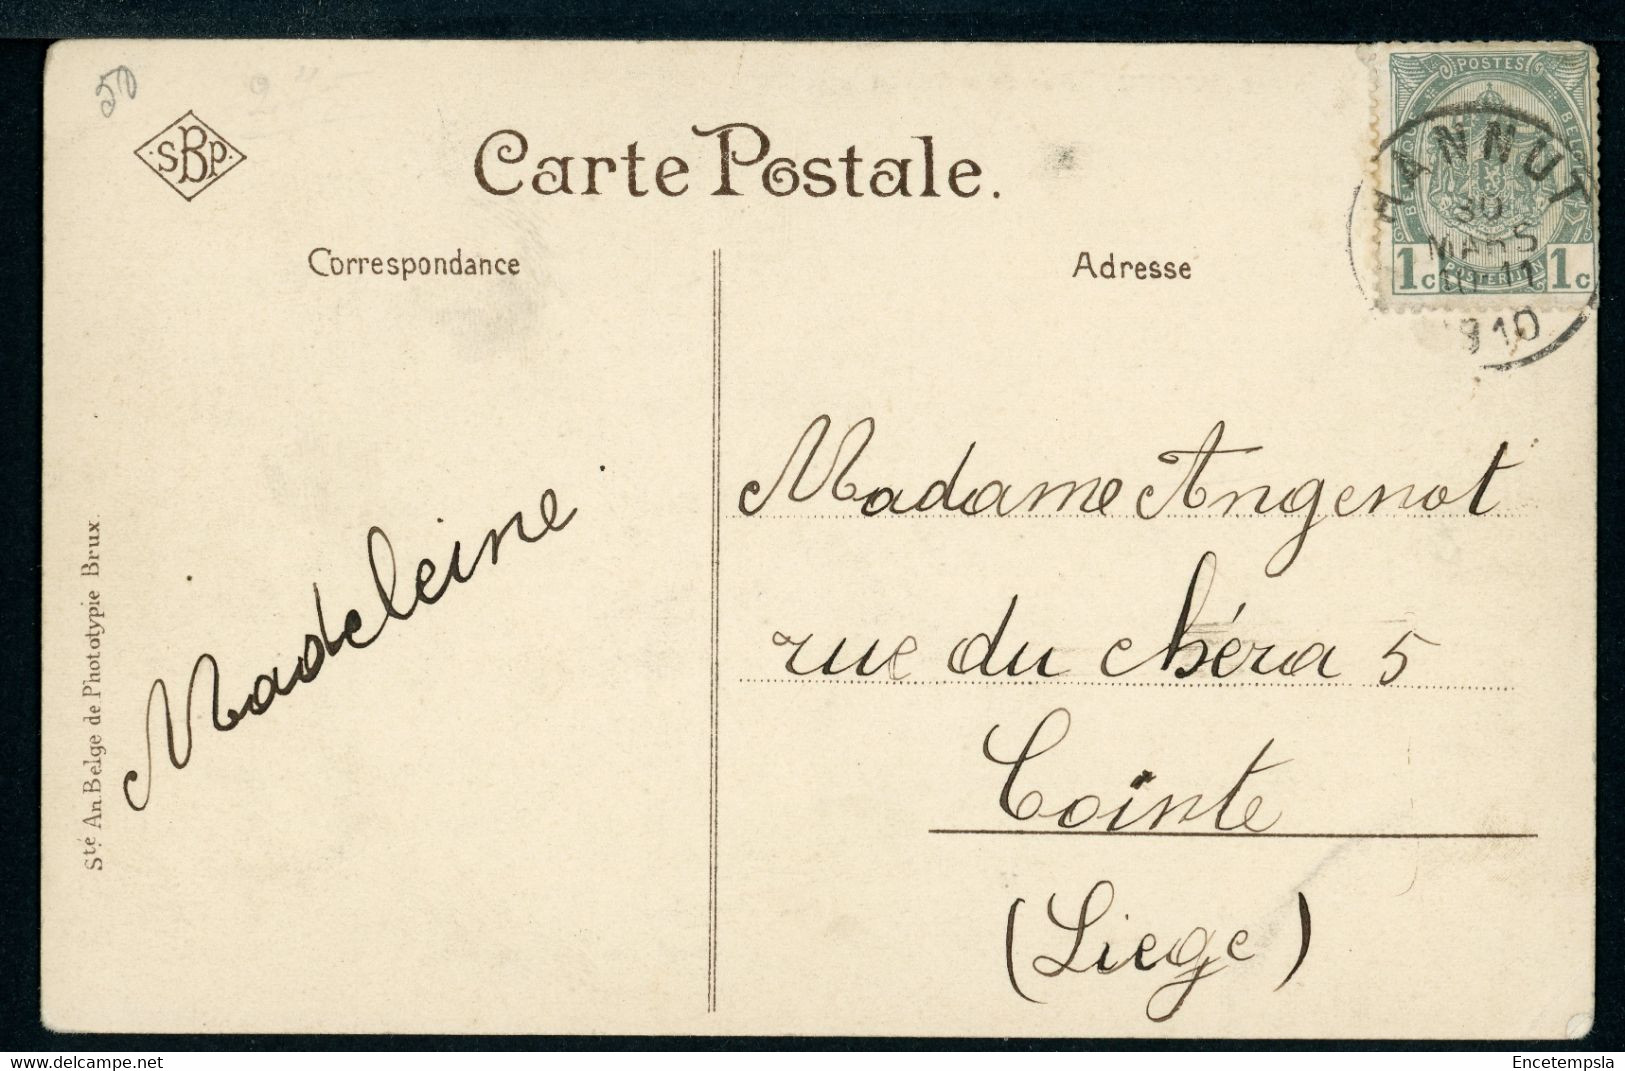 50
SBP
Carte Postale.
Correspondance
Adresse
POSTES
BELGIQUE
BELGIË
1c
POSTERIJEN
1c
HANNUT
30
MARS
10-11
1910
Madeleine
Madame Angenot
rue du chéra 5
Cointe
(Liege)
Sté An. Belge de Phototypie Brux.
www.delcampe.net
Encetempsla